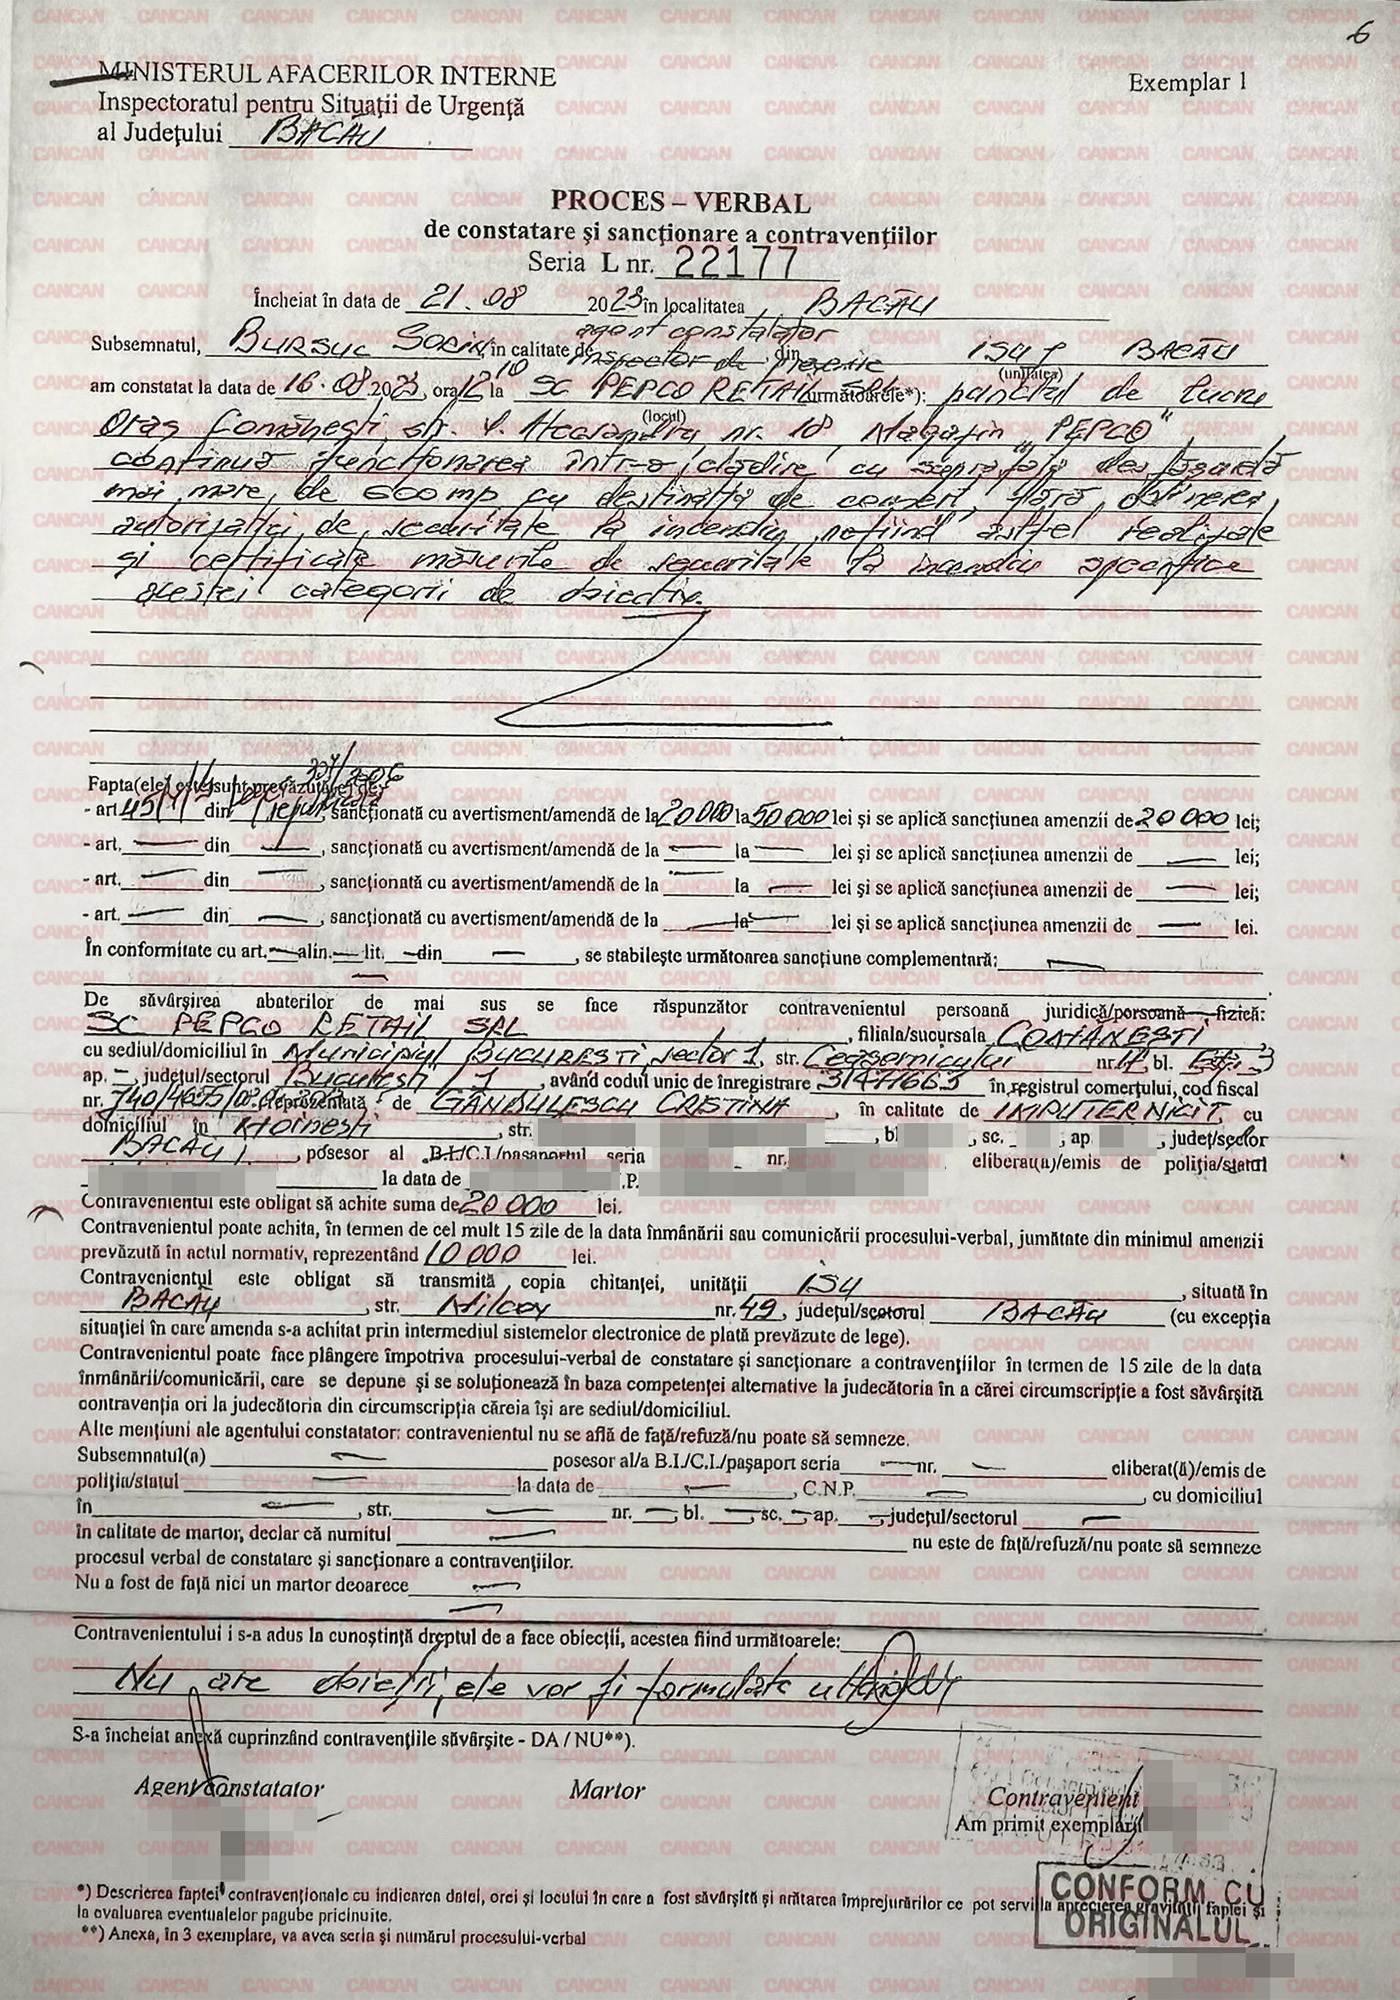 6
MINISTERUL AFACERILOR INTERNE
Exemplar 1
Inspectoratul pentru Situaţii de Urgenţă
al Judeţului BACĂU
PROCES – VERBAL
de constatare şi sancţionare a contravenţiilor
Seria L nr. 22177
Încheiat în data de 21.08 2023 în localitatea BACĂU
agent constatator
Subsemnatul, BURSUC SORIN, în calitate de inspector de prevenire din ISUJ BACĂU
(unitatea)
am constatat la data de 16.08.2023, ora 12 10 la SC PEPCO RETAIL SRL următoarele*): punctul de lucru
(locul)
Oraş Comăneşti, str. nr. 18, Magazin "PEPCO"
continuă funcţionarea într-o clădire cu suprafaţa desfăşurată
mai mare de 600 mp cu destinaţia de comerţ, fără obţinerea
autorizaţiei de securitate la incendiu, nefiind astfel realizate
şi certificate măsurile de securitate la incendiu specifice
acestei categorii de obiectiv.
Fapta(ele) este/sunt prevăzută(e) de:
- art. din 307/2006, sancţionată cu avertisment/amendă de la 20000 la 50000 lei şi se aplică sancţiunea amenzii de 20000 lei;
- art. din , sancţionată cu avertisment/amendă de la la lei şi se aplică sancţiunea amenzii de lei;
- art. din , sancţionată cu avertisment/amendă de la la lei şi se aplică sancţiunea amenzii de lei;
- art. din , sancţionată cu avertisment/amendă de la la lei şi se aplică sancţiunea amenzii de lei.
În conformitate cu art. alin. lit. din , se stabileşte următoarea sancţiune complementară:
De săvârşirea abaterilor de mai sus se face răspunzător contravenientul persoană juridică/persoană fizică:
SC PEPCO RETAIL SRL, filiala/sucursala COMĂNEŞTI,
cu sediul/domiciliul în Municipiul BUCUREŞTI, sector 1, str. Ceasornicului nr. bl.
ap. –, judeţul/sectorul Bucureşti / 1, având codul unic de înregistrare în registrul comerţului, cod fiscal
nr. reprezentată de GANDULESCU CRISTINA, în calitate de IMPUTERNICIT, cu
domiciliul în , str. , bl , sc. , ap , judeţ/sector
BACĂU, posesor al B.I./C.I./paşaportul seria nr. eliberat(ă)/emis de poliţia/statul
la data de .P.
Contravenientul este obligat să achite suma de 20 000 lei.
Contravenientul poate achita, în termen de cel mult 15 zile de la data înmânării sau comunicării procesului-verbal, jumătate din minimul amenzii
prevăzută în actul normativ, reprezentând 10 000 lei.
Contravenientul este obligat să transmită copia chitanţei, unităţii ISU, situată în
BACĂU, str. Milcov nr. 49, judeţul/sectorul BACĂU (cu excepţia
situaţiei în care amenda s-a achitat prin intermediul sistemelor electronice de plată prevăzute de lege).
Contravenientul poate face plângere împotriva procesului-verbal de constatare şi sancţionare a contravenţiilor în termen de 15 zile de la data
înmânării/comunicării, care se depune şi se soluţionează în baza competenţei alternative la judecătoria în a cărei circumscripţie a fost săvârşită
contravenţia ori la judecătoria din circumscripţia căreia îşi are sediul/domiciliul.
Alte menţiuni ale agentului constatator: contravenientul nu se află de faţă/refuză/nu poate să semneze.
Subsemnatul(a) posesor al/a B.I./C.I./paşaport seria nr. eliberat(ă)/emis de
poliţia/statul la data de , C.N.P. , cu domiciliul
în , str. nr. , bl. , sc. , ap. , judeţul/sectorul
în calitate de martor, declar că numitul nu este de faţă/refuză/nu poate să semneze
procesul verbal de constatare şi sancţionare a contravenţiilor.
Nu a fost de faţă nici un martor deoarece
Contravenientului i s-a adus la cunoştinţă dreptul de a face obiecţii, acestea fiind următoarele:
Nu are obiecţii, ele vor fi formulate ulterior
S-a încheiat anexă cuprinzând contravenţiile săvârşite - DA / NU**).
Agent constatator
Martor
Contravenient
Am primit exemplarul
*) Descrierea faptei contravenţionale cu indicarea datei, orei şi locului în care a fost săvârşită şi arătarea împrejurărilor ce pot servi la aprecierea gravităţii faptei şi
la evaluarea eventualelor pagube pricinuite.
**) Anexa, în 3 exemplare, va avea seria şi numărul procesului-verbal
CONFORM CU
ORIGINALUL
CANCAN